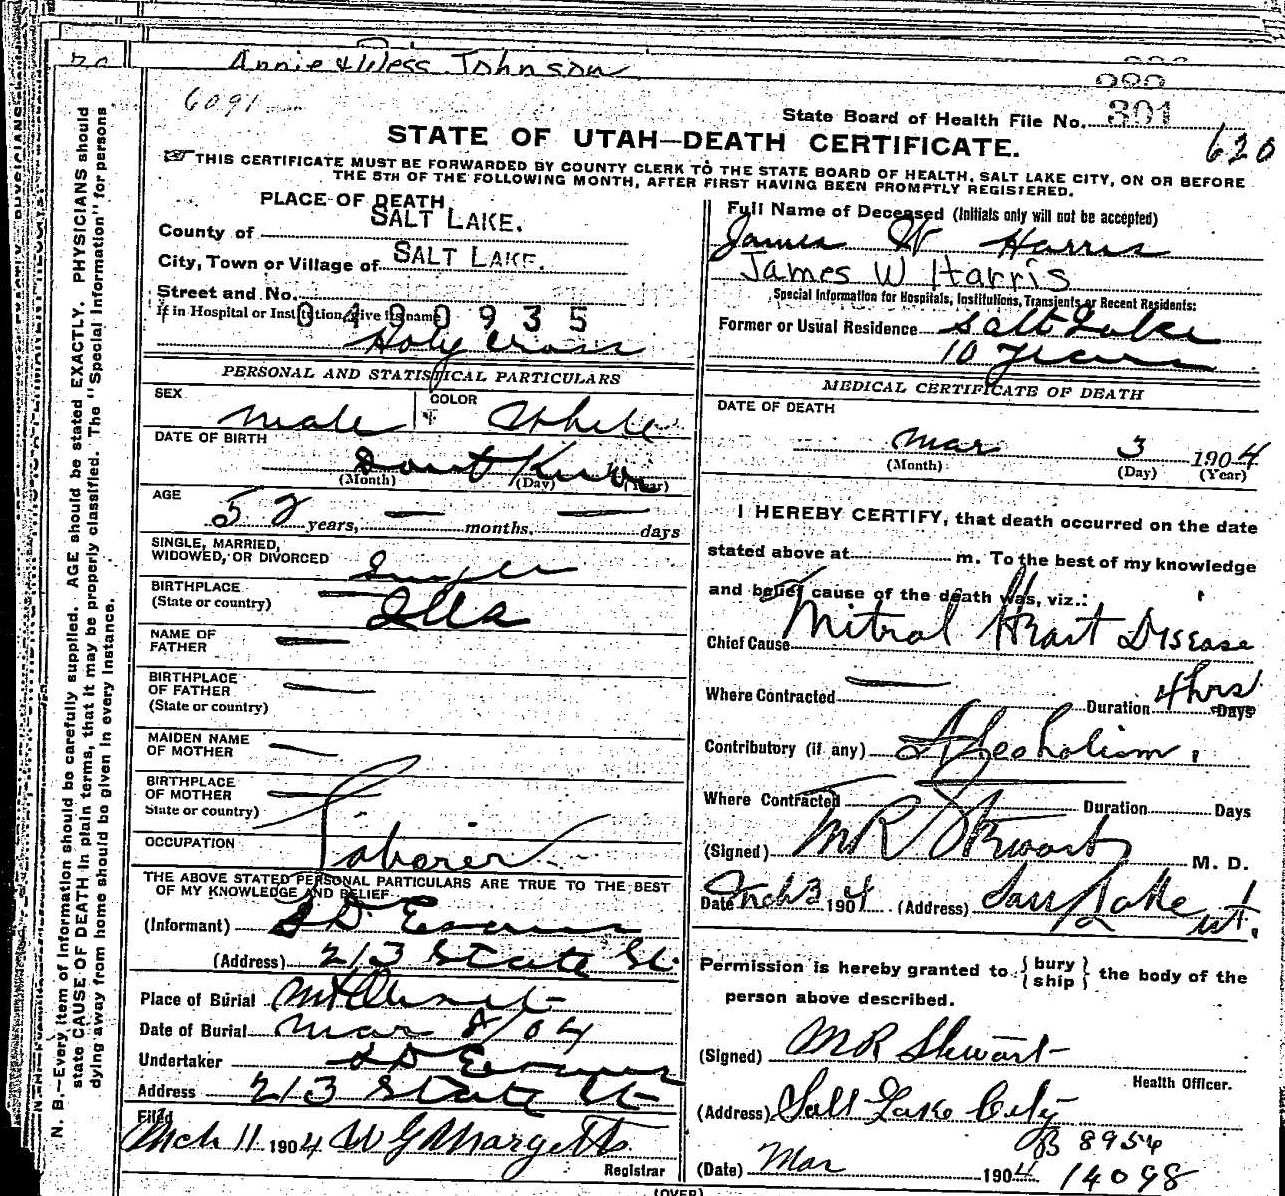 Annie & Wess Johnson
6091
State Board of Health File No. 301
620
STATE OF UTAH—DEATH CERTIFICATE.
☞THIS CERTIFICATE MUST BE FORWARDED BY COUNTY CLERK TO THE STATE BOARD OF HEALTH, SALT LAKE CITY, ON OR BEFORE
THE 5TH OF THE FOLLOWING MONTH, AFTER FIRST HAVING BEEN PROMPTLY REGISTERED.
PLACE OF DEATH
County of SALT LAKE.
City, Town or Village of SALT LAKE.
Street and No.
If in Hospital or Institution, give its name
0400935
Holy Cross
PERSONAL AND STATISTICAL PARTICULARS
SEX Male COLOR White
DATE OF BIRTH Dont Know
(Month) (Day) (Year)
AGE 52 years, — months, — days
SINGLE, MARRIED,
WIDOWED, OR DIVORCED Single
BIRTHPLACE
(State or country) Ills
NAME OF
FATHER —
BIRTHPLACE
OF FATHER —
(State or country)
MAIDEN NAME
OF MOTHER —
BIRTHPLACE
OF MOTHER —
State or country)
OCCUPATION Laborer
THE ABOVE STATED PERSONAL PARTICULARS ARE TRUE TO THE BEST
OF MY KNOWLEDGE AND BELIEF
(Informant) S D Evans
(Address) 213 State St.
Place of Burial Mt Olivet
Date of Burial Mar 8/04
Undertaker S D Evans
Address 213 State St
Filed
Mch 11 1904 W G Margetts
Registrar
Full Name of Deceased (Initials only will not be accepted)
James W Harris
James W Harris
Special Information for Hospitals, Institutions, Transients or Recent Residents:
Former or Usual Residence Salt Lake
10 Years
MEDICAL CERTIFICATE OF DEATH
DATE OF DEATH
Mar 3 1904
(Month) (Day) (Year)
I HEREBY CERTIFY, that death occurred on the date
stated above at m. To the best of my knowledge
and belief cause of the death was, viz.:
Chief Cause Mitral Heart Disease
Where Contracted — Duration 4hrs Days
Contributory (if any) Alcoholism.
Where Contracted — Duration Days
(Signed) M R Stewart M. D.
Date Mch 3 1904 (Address) Salt Lake Ut.
Permission is hereby granted to {bury
ship} the body of the
person above described.
(Signed) M R Stewart
Health Officer.
(Address) Salt Lake City
B 8954
(Date) Mar 1904 14098
(OVER)
N. B.—Every item of information should be carefully supplied. AGE should be stated EXACTLY. PHYSICIANS should
state CAUSE OF DEATH in plain terms, that it may be properly classified. The "Special Information" for persons
dying away from home should be given in every instance.